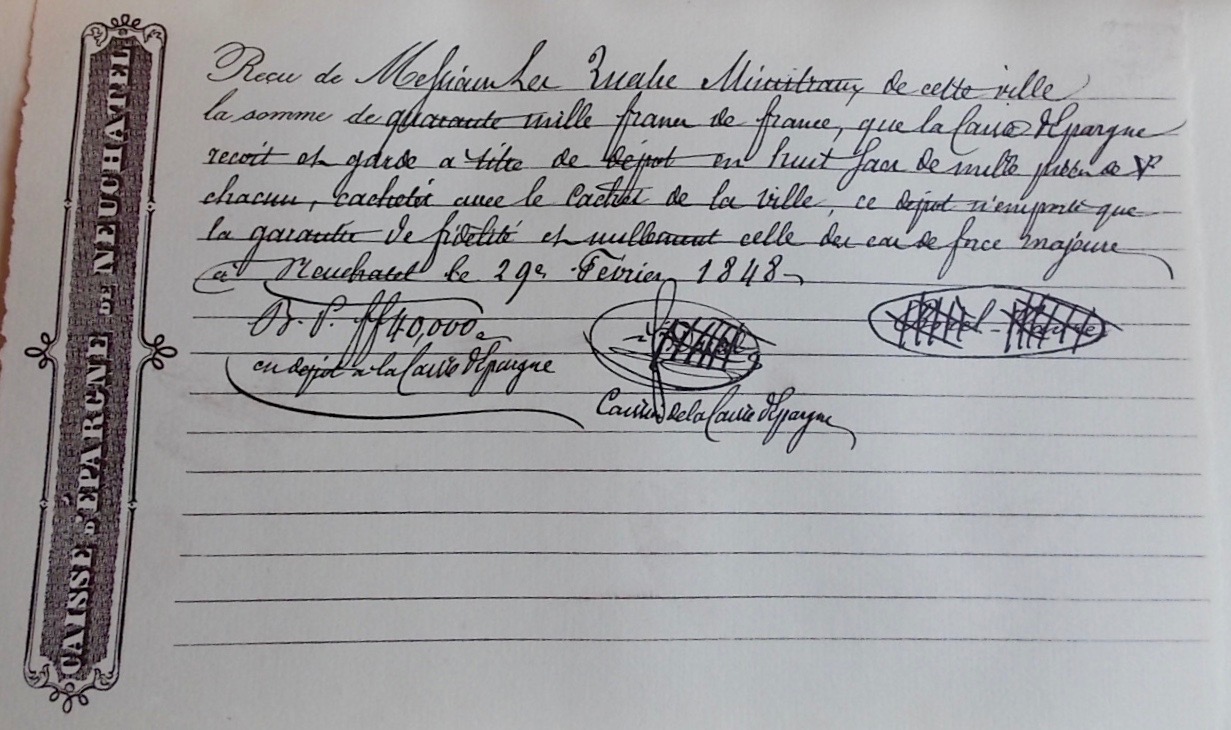 CAISSE D'ÉPARGNE DE NEUCHATEL
Reçu de Messieurs Les Quatre Ministraux de cette ville
la somme de quarante mille francs de france, que la Caisse d'Epargne
recoit et garde a titre de dépot en huit sacs de mille pièces de
chacun, cachetés avec le Cachet de la ville, ce dépot n'emporte que
la garantie de fidélité et nullement celle des cas de force majeure
à Neuchatel le 29e Février 1848
B. P. ff 40,000.
en dépot a la Caisse d'Epargne
Caissier de la Caisse d'Epargne